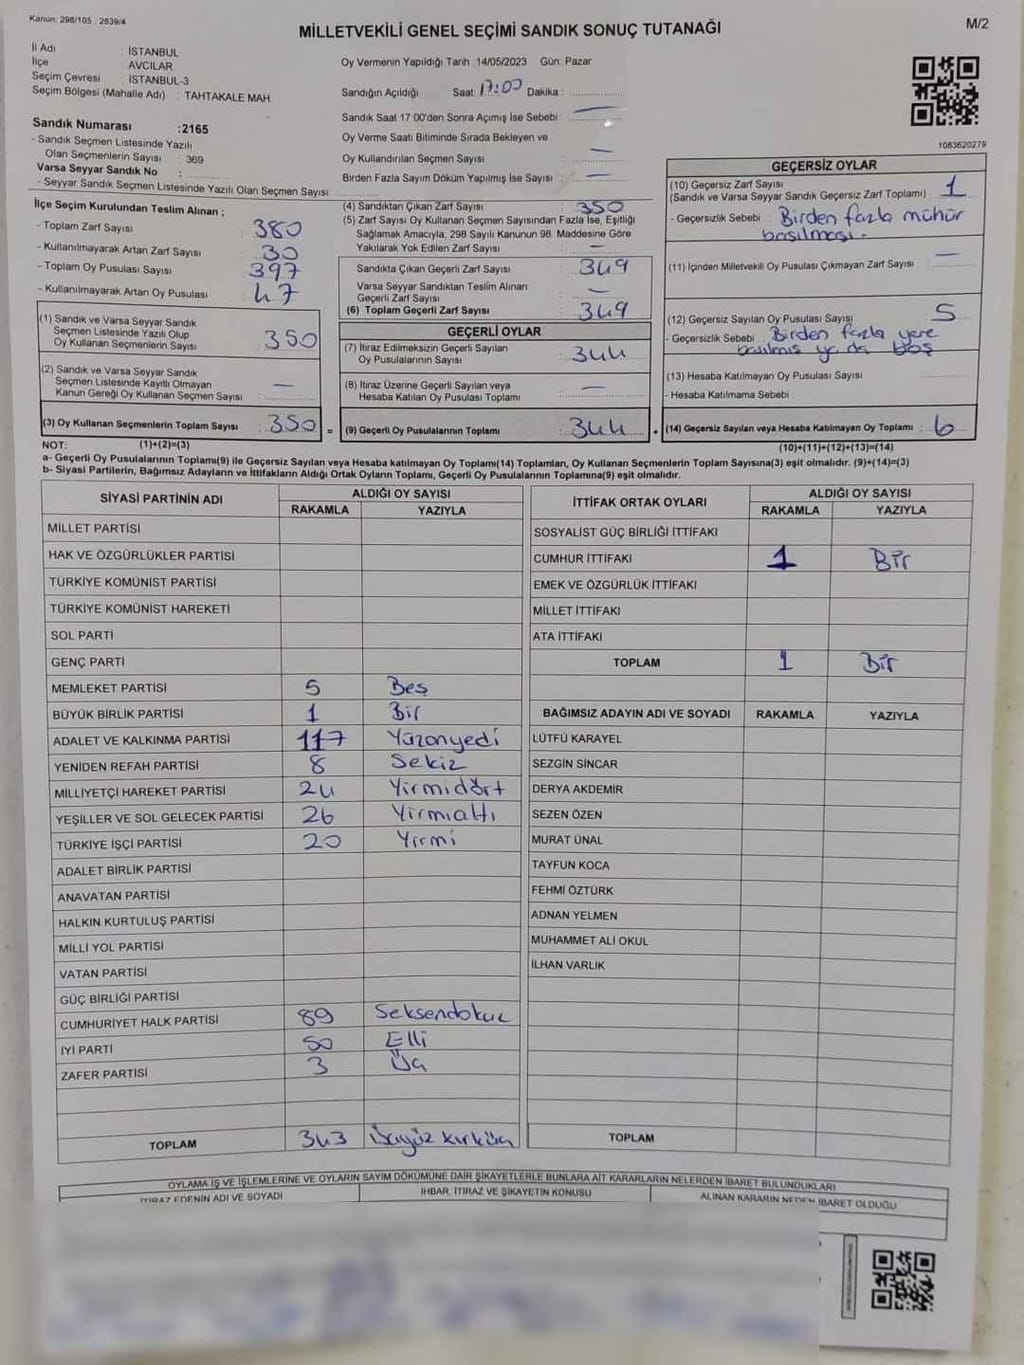 Kanun: 298/105 , 2839/4
MİLLETVEKİLİ GENEL SEÇİMİ SANDIK SONUÇ TUTANAĞI
M/2
İl Adı : İSTANBUL
İlçe : AVCILAR
Seçim Çevresi : İSTANBUL-3
Seçim Bölgesi (Mahalle Adı) : TAHTAKALE MAH
Sandık Numarası :2165
- Sandık Seçmen Listesinde Yazılı
Olan Seçmenlerin Sayısı : 369
Varsa Seyyar Sandık No :
- Seyyar Sandık Seçmen Listesinde Yazılı Olan Seçmen Sayısı :
Oy Vermenin Yapıldığı Tarih :14/05/2023 Gün: Pazar
Sandığın Açıldığı Saat: 17:00 Dakika :
Sandık Saat 17 00'den Sonra Açımış İse Sebebi : —
Oy Verme Saati Bitiminde Sırada Bekleyen ve
Oy Kullandırılan Seçmen Sayısı : —
Birden Fazla Sayım Döküm Yapılmış İse Sayısı : —
1083620279
İlçe Seçim Kurulundan Teslim Alınan ;
- Toplam Zarf Sayısı : 380
- Kullanılmayarak Artan Zarf Sayısı : 30
- Toplam Oy Pusulası Sayısı : 397
- Kullanılmayarak Artan Oy Pusulası : 47
(1) Sandık ve Varsa Seyyar Sandık
Seçmen Listesinde Yazılı Olup
Oy Kullanan Seçmenlerin Sayısı : 350
(2) Sandık ve Varsa Seyyar Sandık
Seçmen Listesinde Kayıtlı Olmayan
Kanun Gereği Oy Kullanan Seçmen Sayısı : —
(3) Oy Kullanan Seçmenlerin Toplam Sayısı : 350 =
(4) Sandıktan Çıkan Zarf Sayısı : 350
(5) Zarf Sayısı Oy Kullanan Seçmen Sayısından Fazla İse, Eşitliği
Sağlamak Amacıyla; 298 Sayılı Kanunun 98. Maddesine Göre
Yakılarak Yok Edilen Zarf Sayısı : —
Sandıkta Çıkan Geçerli Zarf Sayısı : 349
Varsa Seyyar Sandıktan Teslim Alınan
Geçerli Zarf Sayısı : —
(6) Toplam Geçerli Zarf Sayısı : 349
GEÇERLİ OYLAR
(7) İtiraz Edilmeksizin Geçerli Sayılan
Oy Pusulalarının Sayısı : 344
(8) İtiraz Üzerine Geçerli Sayılan veya
Hesaba Katılan Oy Pusulası Toplamı : —
(9) Geçerli Oy Pusulalarının Toplamı : 344 +
GEÇERSİZ OYLAR
(10) Geçersiz Zarf Sayısı : 1
(Sandık ve Varsa Seyyar Sandık Geçersiz Zarf Toplamı)
- Geçersizlik Sebebi : Birden fazla mühür
basılması.
(11) İçinden Milletvekili Oy Pusulası Çıkmayan Zarf Sayısı : —
(12) Geçersiz Sayılan Oy Pusulası Sayısı : 5
- Geçersizlik Sebebi : Birden fazla yere
basılmış ya da boş
(13) Hesaba Katılmayan Oy Pusulası Sayısı :
- Hesaba Katılmama Sebebi :
(14) Geçersiz Sayılan veya Hesaba Katılmayan Oy Toplamı : 6
NOT: (1)+(2)=(3) (10)+(11)+(12)+(13)=(14)
a- Geçerli Oy Pusulalarının Toplamı(9) ile Geçersiz Sayılan veya Hesaba katılmayan Oy Toplamı(14) Toplamları, Oy Kullanan Seçmenlerin Toplam Sayısına(3) eşit olmalıdır. (9)+(14)=(3)
b- Siyasi Partilerin, Bağımsız Adayların ve İttifakların Aldığı Ortak Oyların Toplamı, Geçerli Oy Pusulalarının Toplamına(9) eşit olmalıdır.
SİYASİ PARTİNİN ADI ALDIĞI OY SAYISI
RAKAMLA YAZIYLA
MİLLET PARTİSİ
HAK VE ÖZGÜRLÜKLER PARTİSİ
TÜRKİYE KOMÜNİST PARTİSİ
TÜRKİYE KOMÜNİST HAREKETİ
SOL PARTİ
GENÇ PARTİ
MEMLEKET PARTİSİ 5 Beş
BÜYÜK BİRLİK PARTİSİ 1 Bir
ADALET VE KALKINMA PARTİSİ 117 Yüzonyedi
YENİDEN REFAH PARTİSİ 8 Sekiz
MİLLİYETÇİ HAREKET PARTİSİ 24 Yirmidört
YEŞİLLER VE SOL GELECEK PARTİSİ 26 Yirmialtı
TÜRKİYE İŞÇİ PARTİSİ 20 Yirmi
ADALET BİRLİK PARTİSİ
ANAVATAN PARTİSİ
HALKIN KURTULUŞ PARTİSİ
MİLLİ YOL PARTİSİ
VATAN PARTİSİ
GÜÇ BİRLİĞİ PARTİSİ
CUMHURİYET HALK PARTİSİ 89 Seksendokuz
İYİ PARTİ 50 Elli
ZAFER PARTİSİ 3 Üç
TOPLAM 343 Üçyüz kırküç
İTTİFAK ORTAK OYLARI ALDIĞI OY SAYISI
RAKAMLA YAZIYLA
SOSYALİST GÜÇ BİRLİĞİ İTTİFAKI
CUMHUR İTTİFAKI 1 Bir
EMEK VE ÖZGÜRLÜK İTTİFAKI
MİLLET İTTİFAKI
ATA İTTİFAKI
TOPLAM 1 Bir
BAĞIMSIZ ADAYIN ADI VE SOYADI RAKAMLA YAZIYLA
LÜTFÜ KARAYEL
SEZGİN SİNCAR
DERYA AKDEMİR
SEZEN ÖZEN
MURAT ÜNAL
TAYFUN KOCA
FEHMİ ÖZTÜRK
ADNAN YELMEN
MUHAMMET ALİ OKUL
İLHAN VARLIK
TOPLAM
OYLAMA İŞ VE İŞLEMLERİNE VE OYLARIN SAYIM DÖKÜMÜNE DAİR ŞİKAYETLERLE BUNLARA AİT KARARLARIN NELERDEN İBARET BULUNDUKLARI
İTİRAZ EDENİN ADI VE SOYADI İHBAR, İTİRAZ VE ŞİKAYETİN KONUSU ALINAN KARARIN NEDEN İBARET OLDUĞU